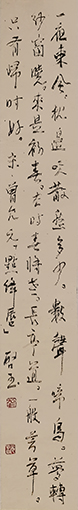 一夜東風枕邊吹散愁多少。數聲啼鳥。夢轉
紗窗曉。來是初春去時春將老。長亭道。一般芳草。
只有歸時好。宋曾允元點絳唇